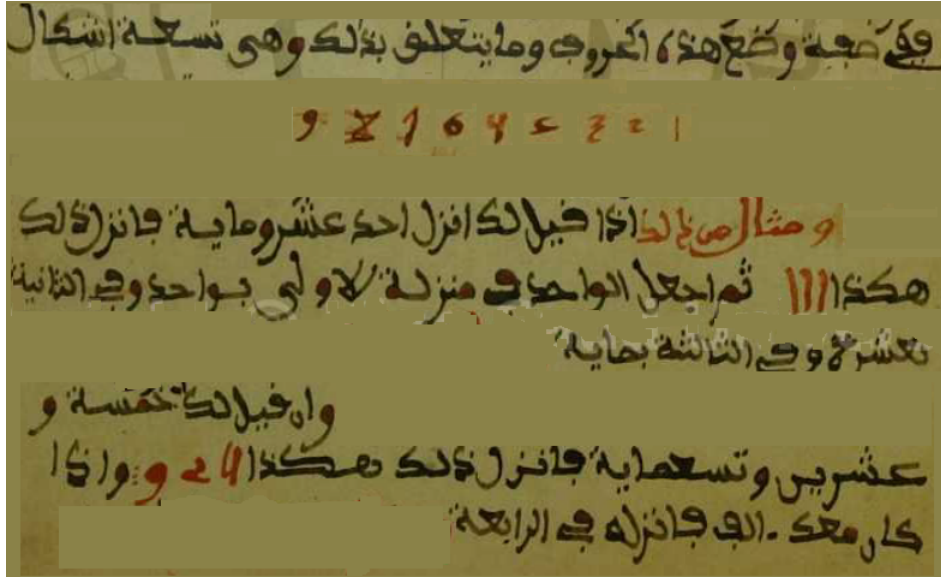 في صفة وضع هذه الحروف وما يتعلق بذلك وهي تسعة اشكال
9 8 7 6 5 4 3 2 1
ومثال من ذلك اذا قيل لك انزل احد عشر وماية فانزل ذلك
هكذا 111 ثم اجعل الواحد في منزلة الاولى بواحد وفي الثانية
بعشرة وفي الثالثة بماية
وان قيل لك خمسة و
عشرين وتسعماية فانزل ذلك هكذا 925 واذا
كان معك الف فانزله في الرابعة